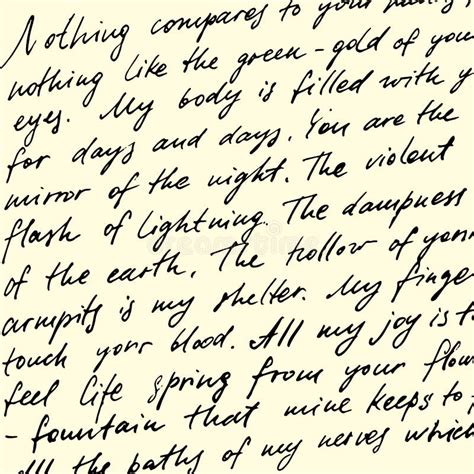 Nothing compares to your
nothing like the green-gold of you
eyes. My body is filled with y
for days and days. You are the
mirror of the night. The violent
flash of lightning. The dampness
of the earth. The hollow of your
armpits is my shelter. My finge
touch your blood. All my joy is t
feel life spring from your flow
-fountain that mine keeps to
all the paths of my nerves which